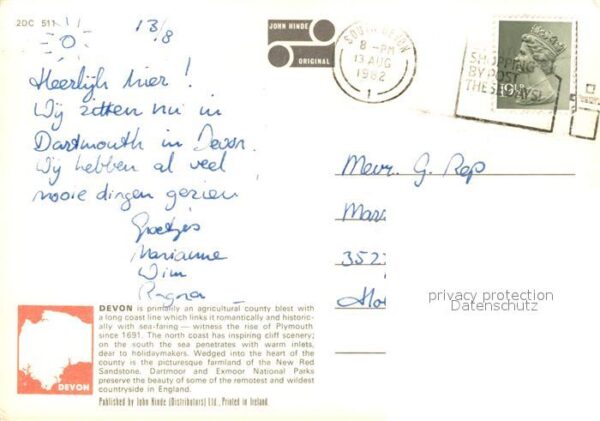 2DC 511
13/8
JOHN HINDE
ORIGINAL
SOUTH DEVON
8 - PM
13 AUG
1982
1
SHOPPING
BY POST
THESE DAYS!
Heerlijk hier!
Wij zitten nu in
Dartmouth in Devon.
Wij hebben al veel
mooie dingen gezien
Groetjes
Marianne
Wim
Mevr. G. Rep
352
privacy protection
Datenschutz
DEVON is primarily an agricultural county blest with
a long coast line which links it romantically and historic-
ally with sea-faring — witness the rise of Plymouth
since 1691. The north coast has inspiring cliff scenery;
on the south the sea penetrates with warm inlets,
dear to holidaymakers. Wedged into the heart of the
county is the picturesque farmland of the New Red
Sandstone. Dartmoor and Exmoor National Parks
preserve the beauty of some of the remotest and wildest
countryside in England.
DEVON
Published by John Hinde (Distributors) Ltd., Printed in Ireland.